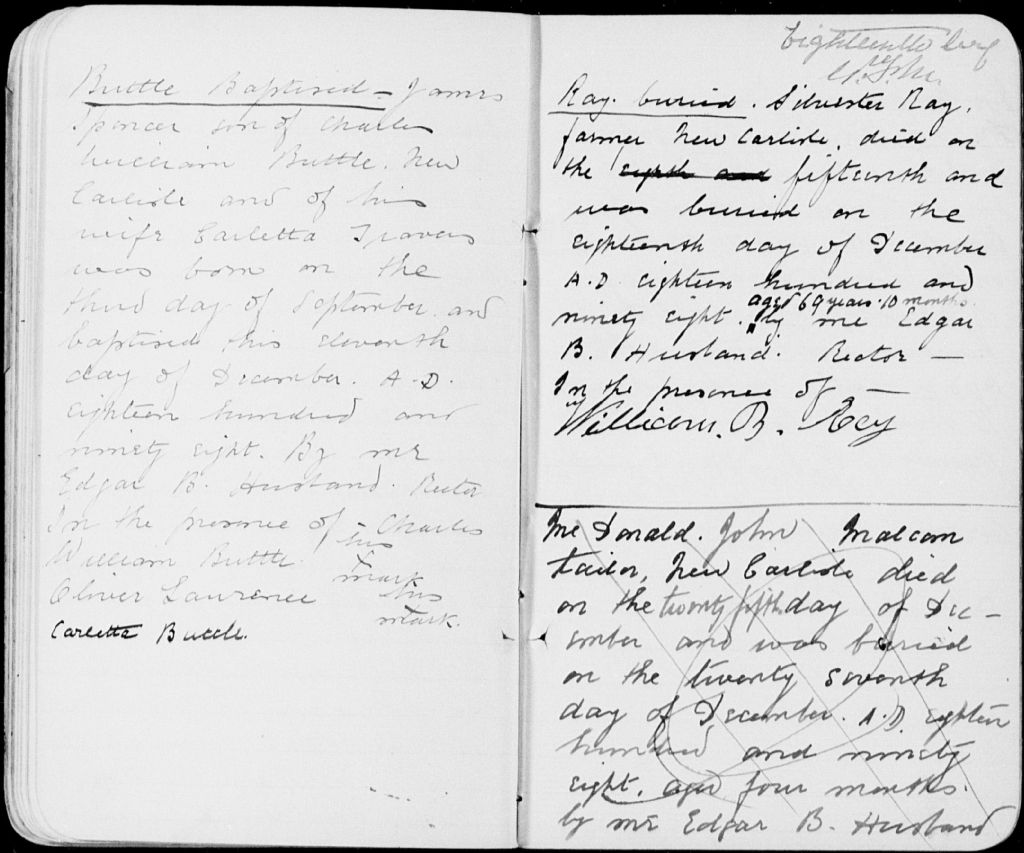 Buttle Baptised - James
Spencer son of Charles
William Buttle. New
Carlisle and of his
wife Carletta Travers
was born on the
third day of September. and
baptised this eleventh
day of December. A.D.
eighteen hundred and
ninety eight. By me
Edgar B. Husband. Rector
In the presence of - Charles
William Buttle. his
mark
Oliver Laurence his
mark.
Carletta Buttle.
Eighteenth leaf
Ray. buried. Silvester Ray.
farmer New Carlisle, died on
the eighth and fifteenth and
was buried on the
eighteenth day of December
A.D. eighteen hundred and
aged 69 years. 10 months.
ninety eight. by me Edgar
B. Husband. Rector —
In the presence of —
William. B. Key
McDonald. John Malcom
tailor, New Carlisle died
on the twenty fifth day of Dec-
ember and was buried
on the twenty seventh
day of December. A.D eighteen
hundred and ninety
eight. aged four months.
by me Edgar B. Husband